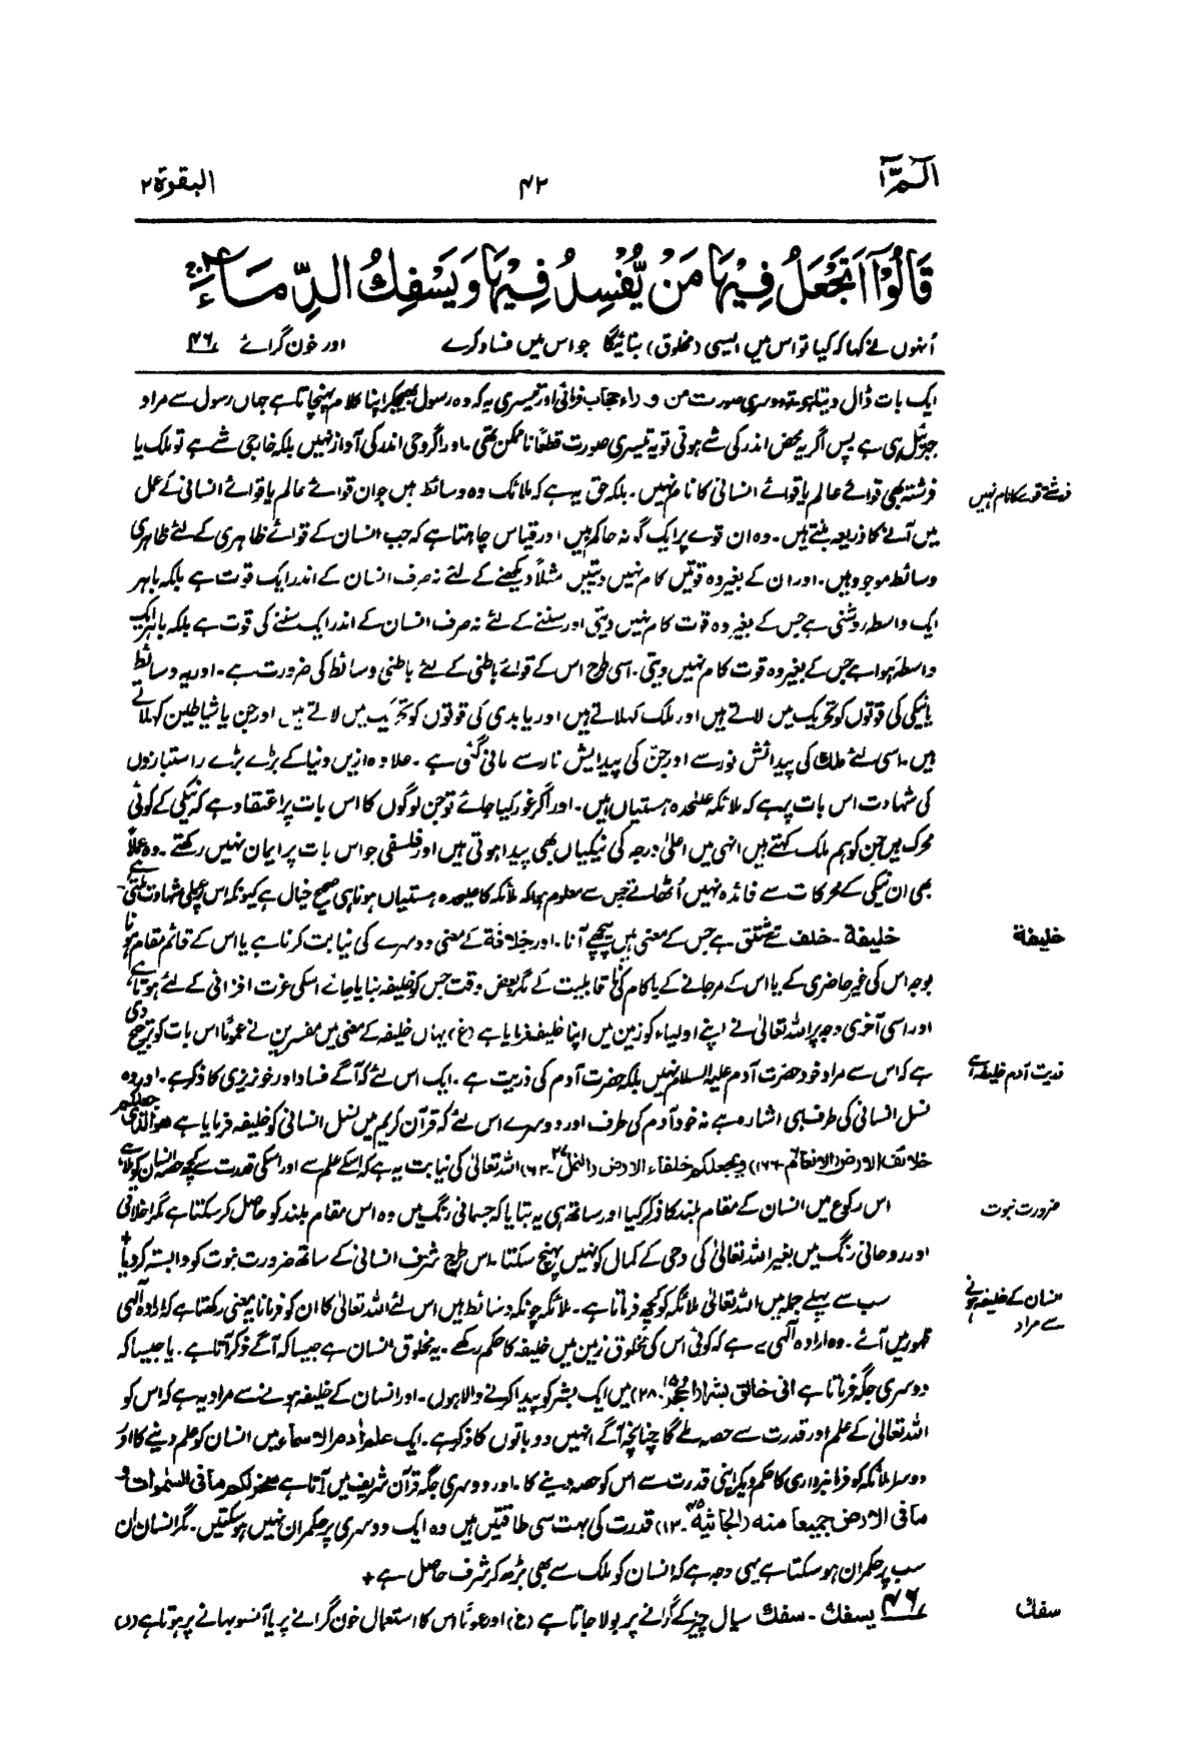 الٓمّٓ
۴۲
البقرة ۲
قَالُوْٓا اَتَجْعَلُ فِيْهَا مَنْ يُّفْسِدُ فِيْهَا وَيَسْفِكُ الدِّمَآءَ
اُنہوں نے کہا کہ کیا تو اس میں ایسی (مخلوق) بنائیگا جو اس میں فساد کرے اور خون گرائے ۴۶
ایک بات ڈال دیتا ہے۔ دوسری صورت من وراء حجاب فرمائی اور تیسری یہ کہ وہ رسول بھیجکر اپنا کلام پہنچاتا ہے جہاں رسول سے مراد
جبرئیل ہی ہے پس اگر یہ محض اندر کی شے ہوتی تو یہ تیسری صورت قطعاً ناممکن تھی۔ اور اگر وحی اندر کی آواز نہیں بلکہ خارجی شے ہے تو ملک یا
فرشتہ بھی قوائے عالم یا قوائے انسانی کا نام نہیں۔ بلکہ حق یہ ہے کہ ملائک وہ وسائط ہیں جو ان قوائے عالم یا قوائے انسانی کے عمل
فرشتے قوے کا نام نہیں
میں آنے کا ذریعہ بنتے ہیں۔ وہ ان قوے پر ایک گونہ حاکم ہیں اور قیاس چاہتا ہے کہ جب انسان کے قوائے ظاہری کے لئے ظاہری
وسائط موجود ہیں۔ اور ان کے بغیر وہ قوتیں کام نہیں دیتیں مثلاً دیکھنے کے لئے نہ صرف انسان کے اندر ایک قوت ہے بلکہ باہر
ایک واسطہ روشنی ہے جس کے بغیر وہ قوت کام نہیں دیتی اور سننے کے لئے نہ صرف انسان کے اندر ایک سننے کی قوت ہے بلکہ باہر ایک
واسطہ ہوا ہے جس کے بغیر وہ قوت کام نہیں دیتی۔ اسی طرح اس کے قوائے باطنی کے لئے باطنی وسائط کی ضرورت ہے۔ اور یہ وسائط
یا نیکی کی قوتوں کو تحریک میں لاتے ہیں اور ملک کہلاتے ہیں اور یا بدی کی قوتوں کو تحریک میں لاتے ہیں اور جن یا شیاطین کہلاتے
ہیں۔ اسی لئے ملائک کی پیدائش نور سے اور جن کی پیدایش نار سے مانی گئی ہے۔ علاوہ ازیں دنیا کے بڑے بڑے راستبازوں
کی شہادت اس بات پر ہے کہ ملائکہ علیحدہ ہستیاں ہیں۔ اور اگر غور کیا جائے تو جن لوگوں کا اس بات پر اعتقاد ہے کہ نیکی کے کوئی
محرک ہیں جن کو ہم ملک کہتے ہیں انہی میں اعلیٰ درجہ کی نیکیاں بھی پیدا ہوتی ہیں اور فلسفی جو اس بات پر ایمان نہیں رکھتے۔ وہ عملاً
بھی ان نیکی کے محرکات سے فائدہ نہیں اُٹھاتے جس سے معلوم ہوا کہ ملائکہ کا علیحدہ ہستیاں ہونا ہی صحیح خیال ہے کیونکہ اس پر عملی شہادت ملتی ہے
خلیفة۔ خلف سے مشتق ہے جس کے معنی ہیں پیچھے آنا۔ اور خلافة کے معنی دوسرے کی نیابت کرنا ہے یا اس کے قائم مقام ہونا
خلیفة
بوجہ اس کی غیر حاضری کے یا اس کے مر جانے کے یا کام کی ناقابلیت کے مگر بعض وقت جس کو خلیفہ بنایا جائے اسکی عزت افزائی کے لئے ہوتا ہے
اور اسی آخری وجہ پر اللہ تعالیٰ نے اپنے اولیاء کو زمین میں اپنا خلیفہ فرمایا ہے (غ) یہاں خلیفہ کے معنی میں مفسرین نے عموماً اس بات کو ترجیح دی
ہے کہ اس سے مراد خود حضرت آدم علیہ السلام نہیں بلکہ حضرت آدم کی ذریت ہے۔ ایک اس لئے کہ آگے فساد اور خونریزی کا ذکر ہے۔ اور وہ
ذریت آدم خلیفہ ہے
نسل انسانی کی طرف ہی اشارہ ہے نہ خود آدم کی طرف اور دوسرے اس لئے کہ قرآن کریم میں نسل انسانی کو خلیفہ فرمایا ہے ھوالذی جعلکم
خلائف الارض (الانعام۔ ۱۶۶) ویجعلکم خلفاء الارض (النمل ۲۷۔ ۶۲) اللہ تعالیٰ کی نیابت یہ ہے کہ اسکے علم سے اور اسکی قدرت سے کچھ حصہ انسان کو ملا ہے
اس رکوع میں انسان کے مقام بلند کا ذکر کیا اور ساتھ ہی یہ بتایا کہ جسمانی رنگ میں وہ اس مقام بلند کو حاصل کر سکتا ہے مگر اخلاقی
ضرورت نبوت
اور روحانی رنگ میں بغیر اللہ تعالیٰ کی وحی کے کمال کو نہیں پہنچ سکتا۔ اس طرح شرف انسانی کے ساتھ ضرورت نبوت کو وابستہ کر دیا +
سب سے پہلے جملہ میں اللہ تعالیٰ ملائکہ کو کچھ فرماتا ہے۔ ملائکہ چونکہ وسائط ہیں اس لئے اللہ تعالیٰ کا ان کو فرمانا یہ معنی رکھتا ہے کہ ارادہ الٰہی
انسان کے خلیفہ ہونے
سے مراد
ظہور میں آئے۔ وہ ارادہ الٰہی یہ ہے کہ کوئی اس کی مخلوق زمین میں خلیفہ کا حکم رکھے۔ یہ مخلوق انسان ہے جیسا کہ آگے ذکر آتا ہے۔ یا جیسا کہ
دوسری جگہ فرماتا ہے انی خالق بشرا (الحجر ۱۵۔ ۲۸) میں ایک بشر کو پیدا کرنے والا ہوں۔ اور انسان کے خلیفہ ہونے سے مراد یہ ہے کہ اس کو
اللہ تعالیٰ کے علم اور قدرت سے حصہ ملے گا چنانچہ آگے انہیں دو باتوں کا ذکر ہے۔ ایک علم اٰدم الاسماء میں انسان کو علم دینے کا اور
دوسرا ملائکہ کو فرمانبرداری کا حکم دیکر اپنی قدرت سے اس کو حصہ دینے کا۔ اور دوسری جگہ قرآن شریف میں آتا ہے سخر لکم مافی السمٰوات و
مافی الارض جمیعا منه (الجاثیة ۴۵۔ ۱۳) قدرت کی بہت سی طاقتیں ہیں وہ ایک دوسری پر حکمران نہیں ہو سکتیں۔ مگر انسان ان
سب پر حکمران ہو سکتا ہے یہی وجہ ہے کہ انسان کو ملک سے بھی بڑھ کر شرف حاصل ہے +
۴۶ یسفك۔ سفك سیال چیز کے گرانے پر بولا جاتا ہے (غ) اور عموماً اس کا استعمال خون گرانے پر یا آنسو بہانے پر ہوتا ہے (ن)
سفك